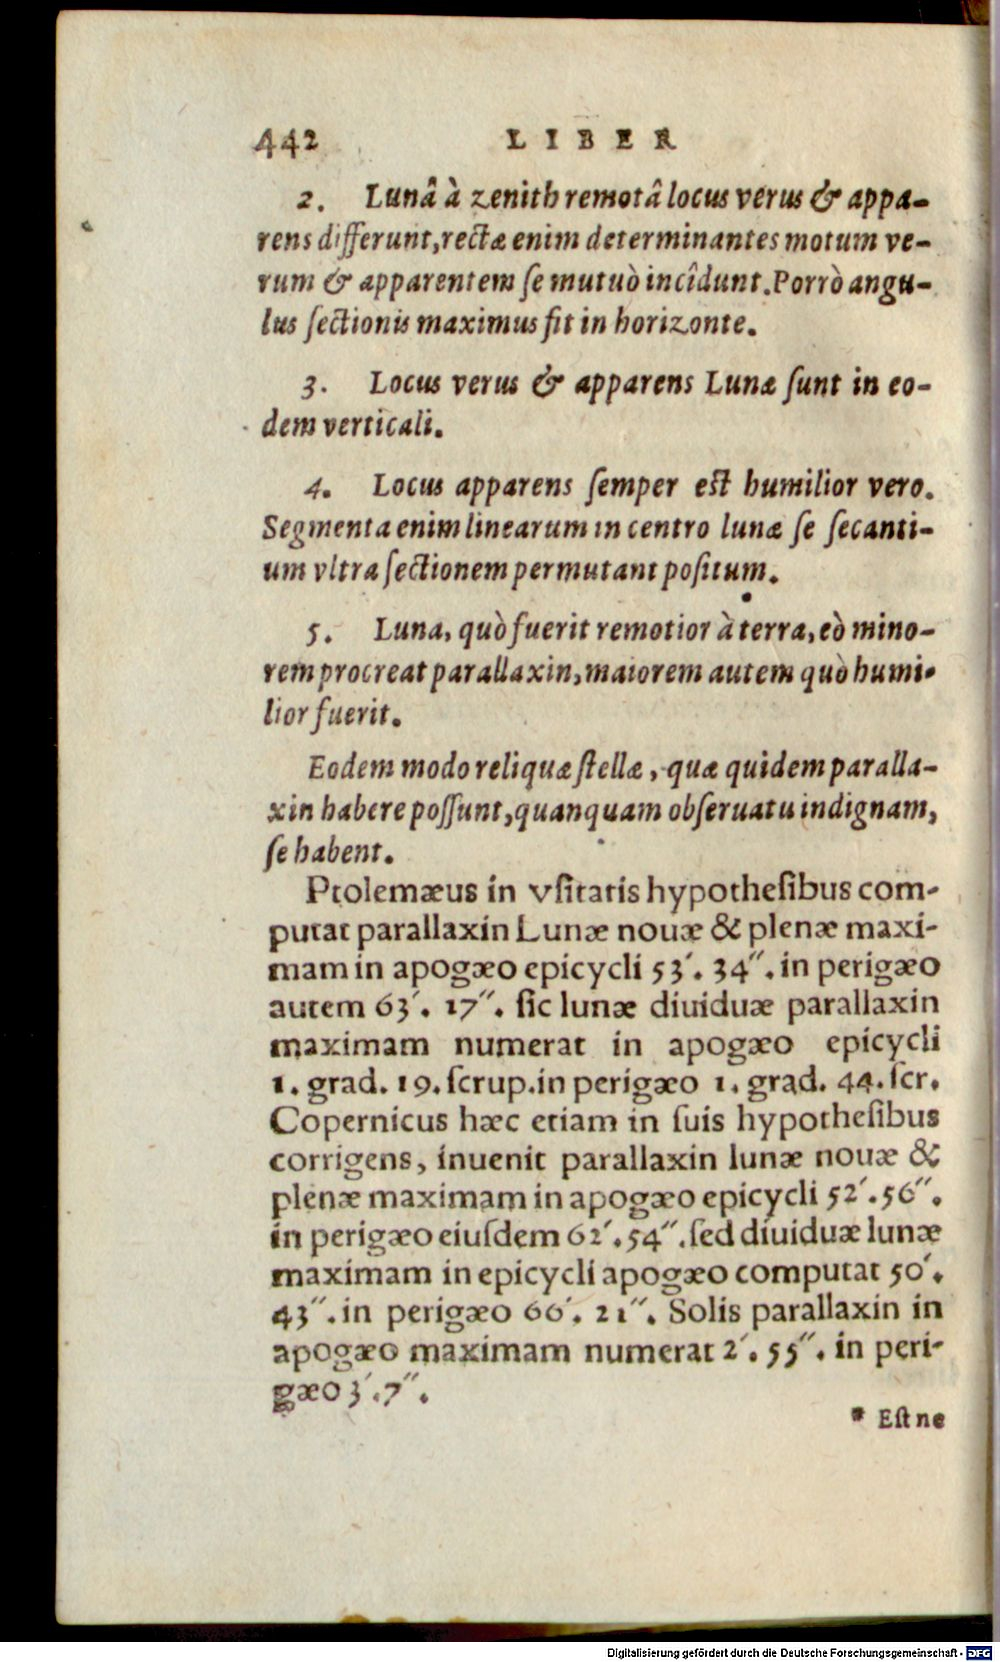 442 LIBER
2. Lunâ à zenith remotâ locus verus & appa-
rens differunt, rectæ enim determinantes motum ve-
rum & apparentem se mutuò incîdunt. Porrò angu-
lus sectionis maximus fit in horizonte.
3. Locus verus & apparens Lunæ sunt in eo-
dem verticali.
4. Locus apparens semper est humilior vero.
Segmenta enim linearum in centro lunæ se secanti-
um vltra sectionem permutant positum.
5. Luna, quò fuerit remotior à terra, eò mino-
rem procreat parallaxin, maiorem autem quò humi-
lior fuerit.
Eodem modo reliquæ stellæ, quæ quidem paralla-
xin habere possunt, quanquam obseruatu indignam,
se habent.
Ptolemæus in vsitatis hypothesibus com-
putat parallaxin Lunæ nouæ & plenæ maxi-
mam in apogæo epicycli 53′. 34″. in perigæo
autem 63′. 17″. sic lunæ diuiduæ parallaxin
maximam numerat in apogæo epicycli
1. grad. 19. scrup. in perigæo 1. grad. 44. scr.
Copernicus hæc etiam in suis hypothesibus
corrigens, inuenit parallaxin lunæ nouæ &
plenæ maximam in apogæo epicycli 52′. 56″.
in perigæo eiusdem 62′. 54″. sed diuiduæ lunæ
maximam in epicycli apogæo computat 50′.
43″. in perigæo 66′. 21″. Solis parallaxin in
apogæo maximam numerat 2′. 55″. in peri-
gæo 3′. 7″.
* Est ne
Digitalisierung gefördert durch die Deutsche Forschungsgemeinschaft - DFG